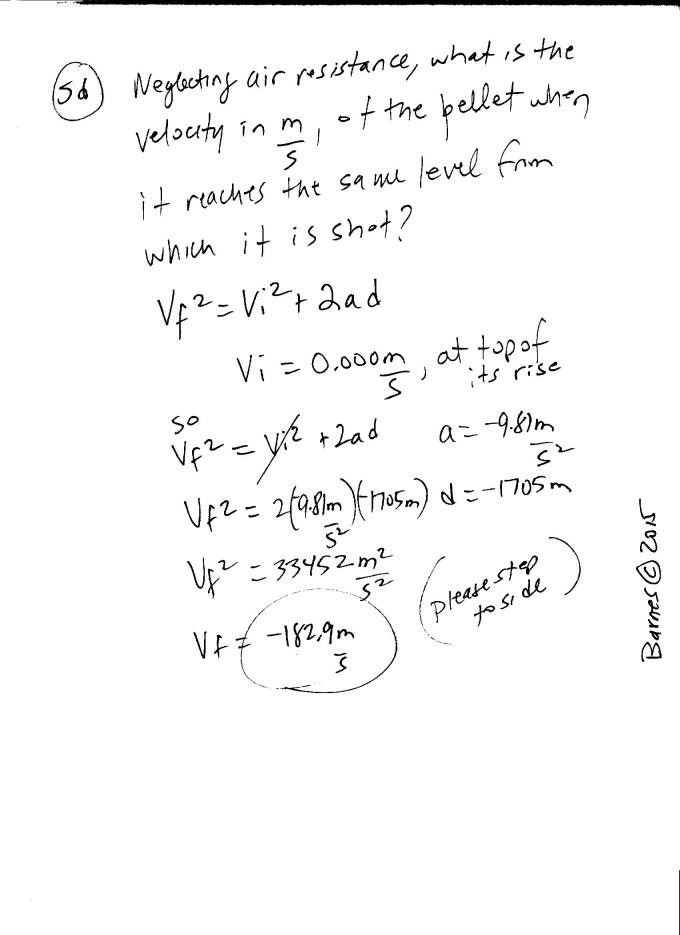 5d Neglecting air resistance, what is the
velocity in m/s, of the pellet when
it reaches the same level from
which it is shot?
Vf² = Vi² + 2ad
Vi = 0.000 m/s, at top of
its rise
so
Vf² = Vi² + 2ad a = -9.81 m/s²
Vf² = 2(-9.81 m/s²)(-1705m) d = -1705m
Vf² = 33452 m²/s²
(please step
to side)
Vf = -182.9 m/s
Barnes © 2015